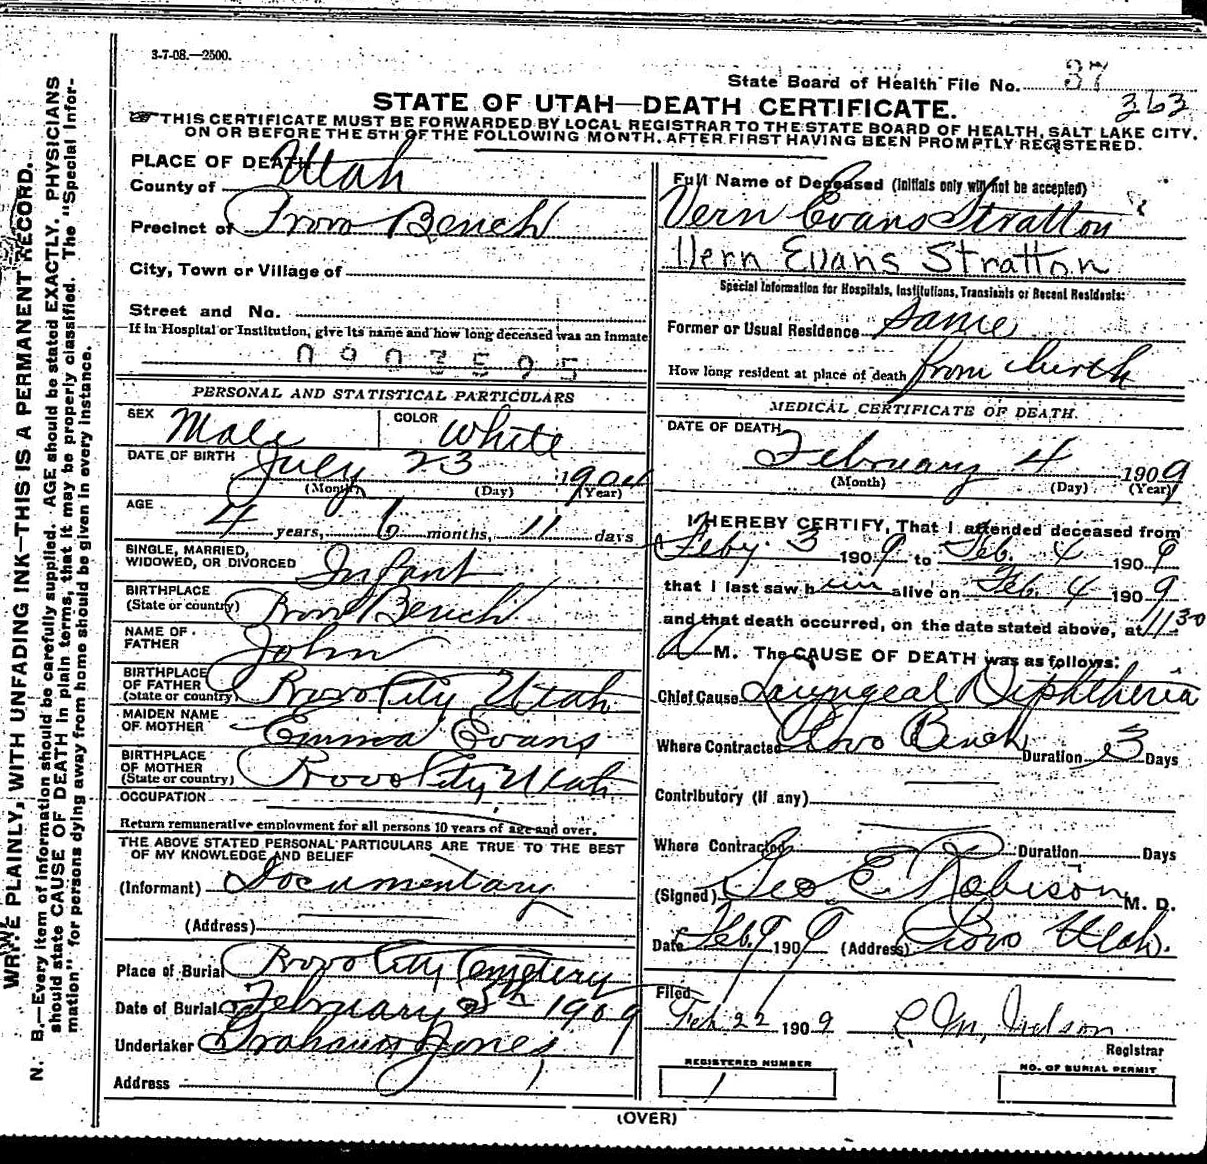 3-7-08.—2500.
State Board of Health File No. 37
363
STATE OF UTAH—DEATH CERTIFICATE.
THIS CERTIFICATE MUST BE FORWARDED BY LOCAL REGISTRAR TO THE STATE BOARD OF HEALTH, SALT LAKE CITY,
ON OR BEFORE THE 5TH OF THE FOLLOWING MONTH, AFTER FIRST HAVING BEEN PROMPTLY REGISTERED.
WRITE PLAINLY, WITH UNFADING INK—THIS IS A PERMANENT RECORD.
N. B.—Every item of information should be carefully supplied. AGE should be stated EXACTLY. PHYSICIANS
should state CAUSE OF DEATH in plain terms, that it may be properly classified. The "Special Infor-
mation" for persons dying away from home should be given in every instance.
PLACE OF DEATH
County of Utah
Precinct of Provo Bench
City, Town or Village of
Street and No.
If in Hospital or Institution, give its name and how long deceased was an Inmate
0903595
PERSONAL AND STATISTICAL PARTICULARS
SEX Male COLOR White
DATE OF BIRTH July 23 1904
(Month) (Day) (Year)
AGE 4 years, 6 months, 11 days
SINGLE, MARRIED,
WIDOWED, OR DIVORCED Infant
BIRTHPLACE
(State or country) Provo Bench
NAME OF
FATHER John
BIRTHPLACE
OF FATHER
(State or country) Provo City Utah
MAIDEN NAME
OF MOTHER Emma Evans
BIRTHPLACE
OF MOTHER
(State or country) Provo City, Utah
OCCUPATION
Return remunerative employment for all persons 10 years of age and over.
THE ABOVE STATED PERSONAL PARTICULARS ARE TRUE TO THE BEST
OF MY KNOWLEDGE AND BELIEF
(Informant) Documentary
(Address)
Place of Burial Provo City Cemetery
Date of Burial February 5th 1909
Undertaker Graham Jones
Address
Full Name of Deceased (Initials only will not be accepted)
Vern Evans Stratton
Vern Evans Stratton
Special Information for Hospitals, Institutions, Transients or Recent Residents:
Former or Usual Residence Same
How long resident at place of death from birth
MEDICAL CERTIFICATE OF DEATH.
DATE OF DEATH
February 4 1909
(Month) (Day) (Year)
I HEREBY CERTIFY, That I attended deceased from
Feby. 3 1909 to Feb. 4 1909
that I last saw him alive on Feb. 4 1909
and that death occurred, on the date stated above, at 11 30
M. The CAUSE OF DEATH was as follows:
Chief Cause Laryngeal Diphtheria
Where Contracted Provo Bench Duration 3 Days
Contributory (if any)
Where Contracted Duration Days
(Signed) Geo E Robison M. D.
Date Feb. 9 1909 (Address) Provo Utah.
Filed
Feb 22 1909
Registrar
REGISTERED NUMBER
1
NO. OF BURIAL PERMIT
(OVER)